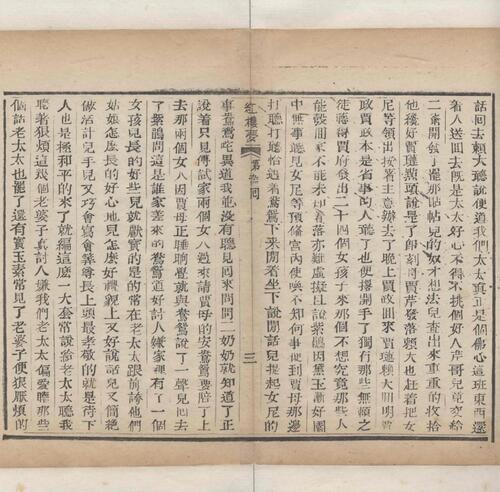 話回去賴大聽說便道我們太太真正是個佛心這班東西還
着人送回去既是太太好心不得不挑個好人芹哥兒竟交給
二爺開發了罷那帖帖兒的奴才想法兒查出來重重的收拾
他纔好賈璉點頭說是了即刻將賈芹發落賴大也赶着把女
尼等領出按着主意辦去了晚上賈政回來賈璉賴大回明賈
政賈政本是省事的人聽了也便撂開手了獨有那些無賴之
徒聽得賈府發出二十四個女孩子來那個不想究竟那些人
能彀回家不能未知着落亦難虛擬且說紫鵑因黛玉漸好園
中無事聽見女尼等預備宮內使喚不知何事便到賈母那邊
打聽打聽恰遇着鴛鴦下來閒着坐下說閒話兒提起女尼的
紅樓夢 第 回 三
事鴛鴦咤異道我並沒有聽見回來問問二奶奶就知道了正
說着只見傅試家兩個女人過來請賈母的安鴛鴦要陪了上
去那兩個女人因賈母正睡晌覺就與鴛鴦說了一聲兒回去
了紫鵑問這是誰家差來的鴛鴦道好討人嫌家裡有了一個
女孩兒長的好些兒就獻寶的是的常在老太太跟前誇他們
姑娘怎麽長的好心地兒怎麽好禮貌上又好說話兒又簡絕
做活計兒手兒又巧會寫會算尊長上頭最孝敬的就是待下
人也是極和平的來了就編這麽一大套常說給老太太聽我
聽著狠煩這幾個老婆子真討人嫌我們老太太偏愛聽那些
個話老太太也罷了還有寶玉素常見了老婆子便狠厭煩的